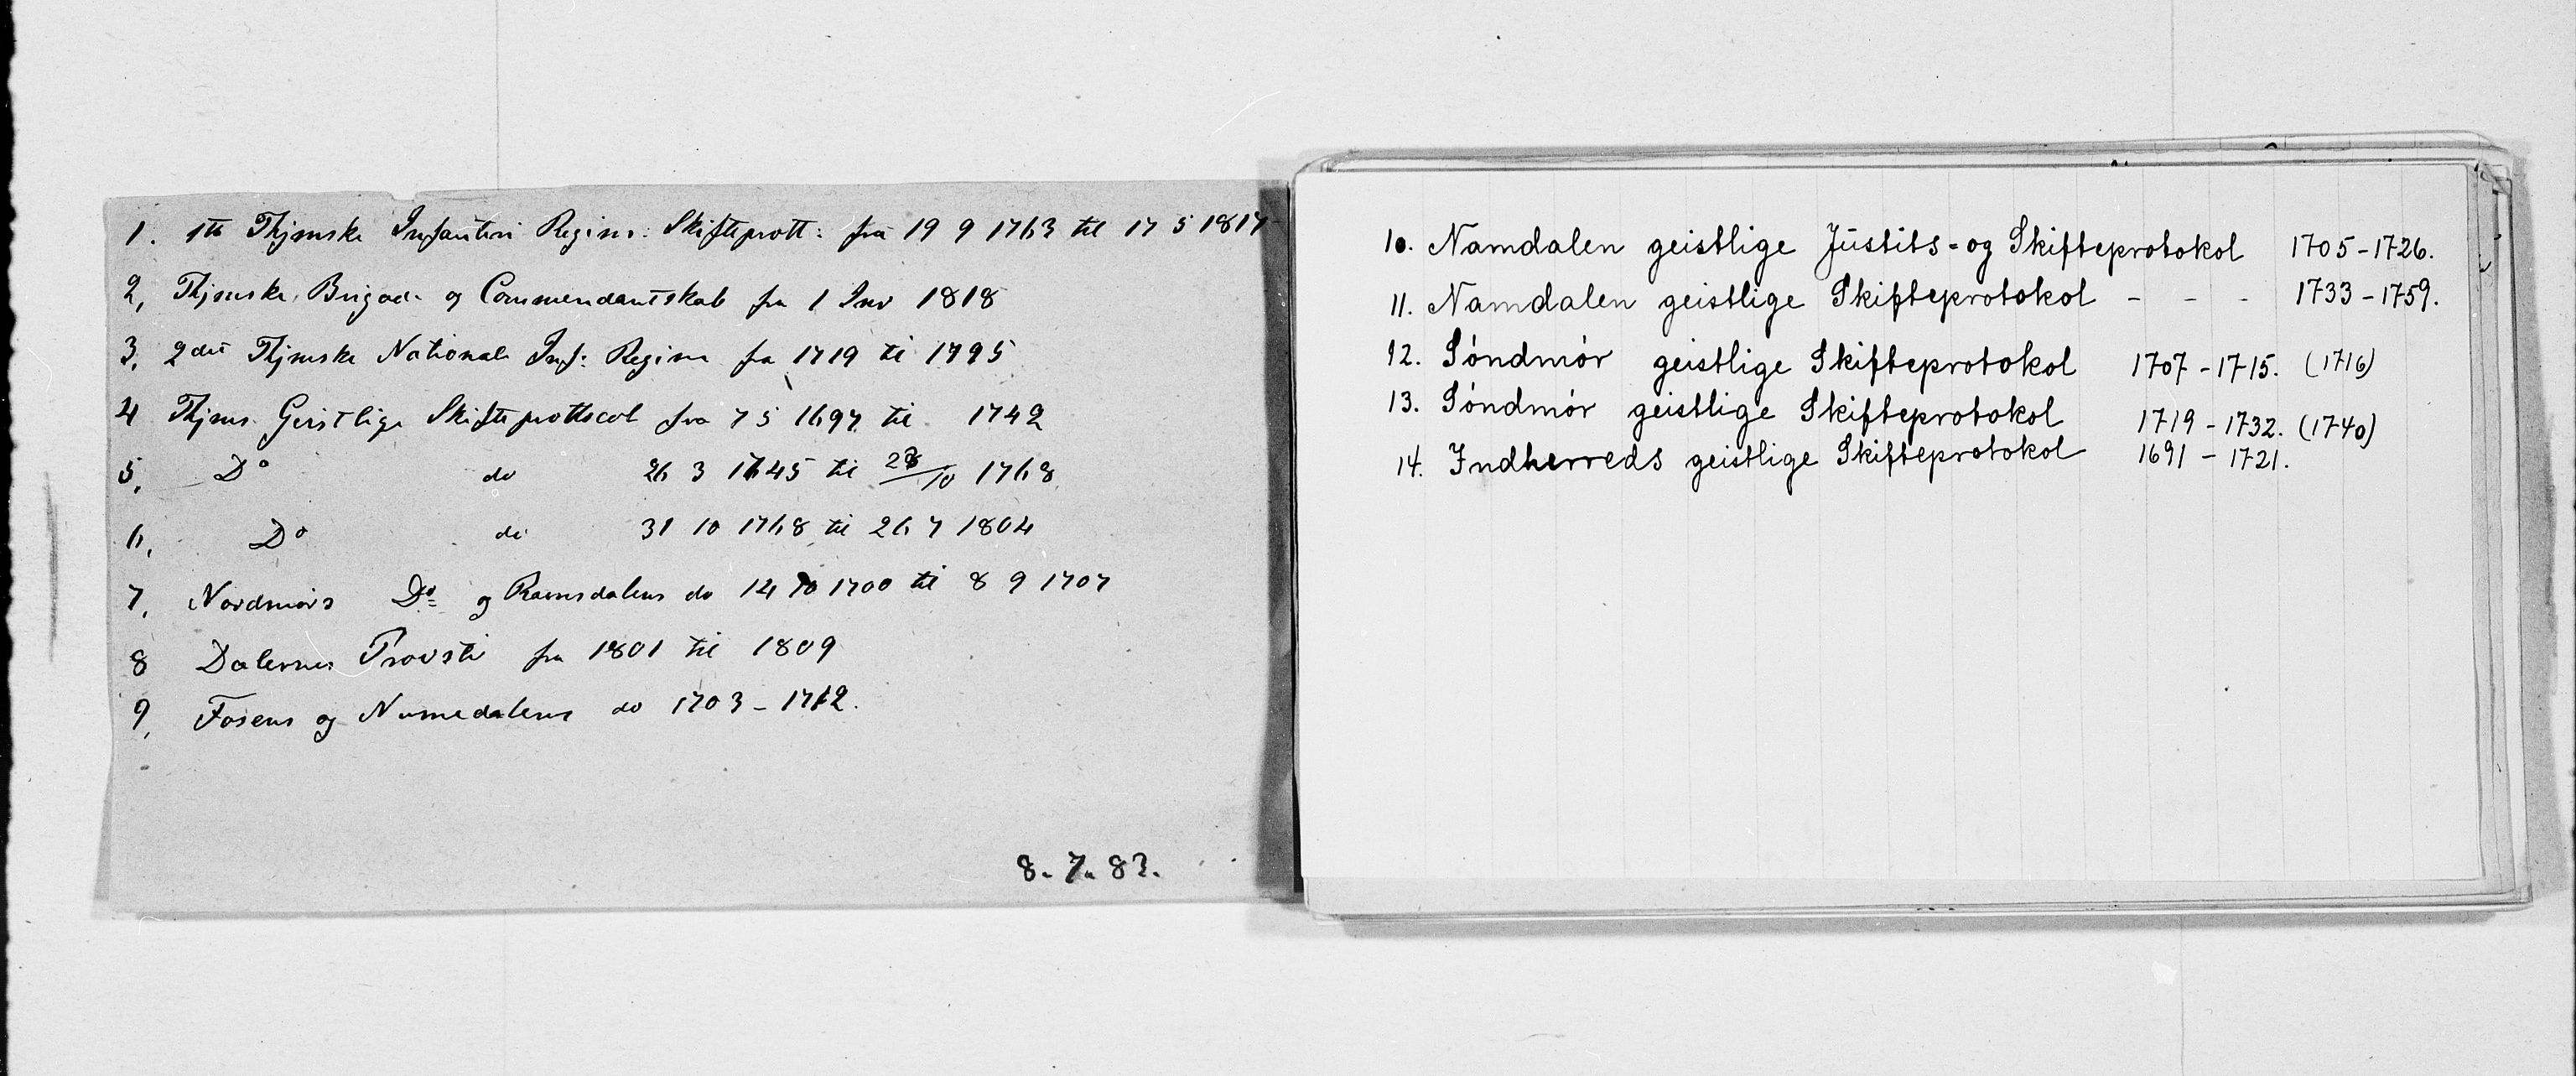 1. 1te Thjemske Infanteri Regim: Skifteprott: fra 19 9 1763 til 17 5 1817
2, Thjemske Brigad- og Commendantskab fra 1 Jnv 1818
3, 2det Thjemske Nationale Inf: Regim fra 1719 til 1795
4 Thjems Geistlige Skifteprottocol fra 7 5 1697 til 1742
5, Do do 26 3 1745 til 28/10 1768
6, Do do 31 10 1768 til 26 7 1804
7, Nordmørs Do og Ramsdalens do 14 10 1700 til 8 9 1707
8 Dalernes Provsti fra 1801 til 1809
9, Fosens og Numedalens do 1703 - 1712.
8. 7. 83.
10. Namdalen geistlige Justits- og Skifteprotokol 1705-1726.
11. Namdalen geistlige Skifteprotokol - - - 1733-1759.
12. Söndmör geistlige Skifteprotokol 1707-1715. (1716)
13. Söndmör geistlige Skifteprotokol 1719-1732. (1740)
14. Indherreds geistlige Skifteprotokol 1691-1721.